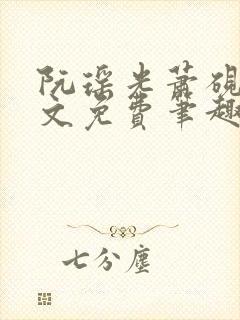 阮瑶光萧砚
文免费笔趣
七分尘